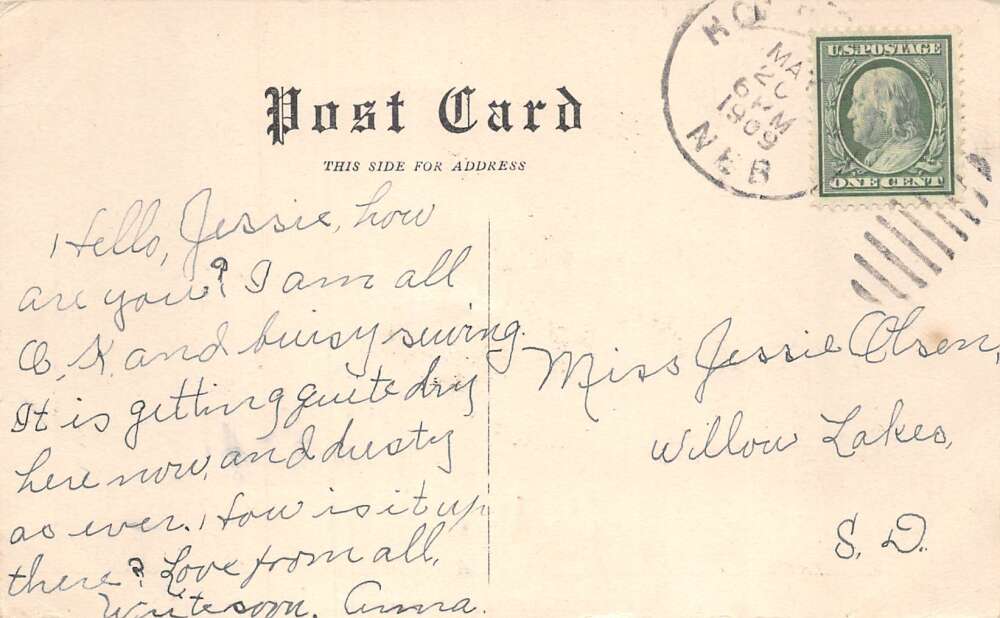 Post Card
THIS SIDE FOR ADDRESS
NEB
MAY
20
6 PM
1909
U.S. POSTAGE
ONE CENT
Hello, Jessie, how
are you? I am all
O.K. and buisy sewing.
It is getting quite dry
here now, and dusty
as ever. How is it up
there? Love from all.
Write soon. Anna.
Miss Jessie Olsen,
Willow Lakes,
S. D.